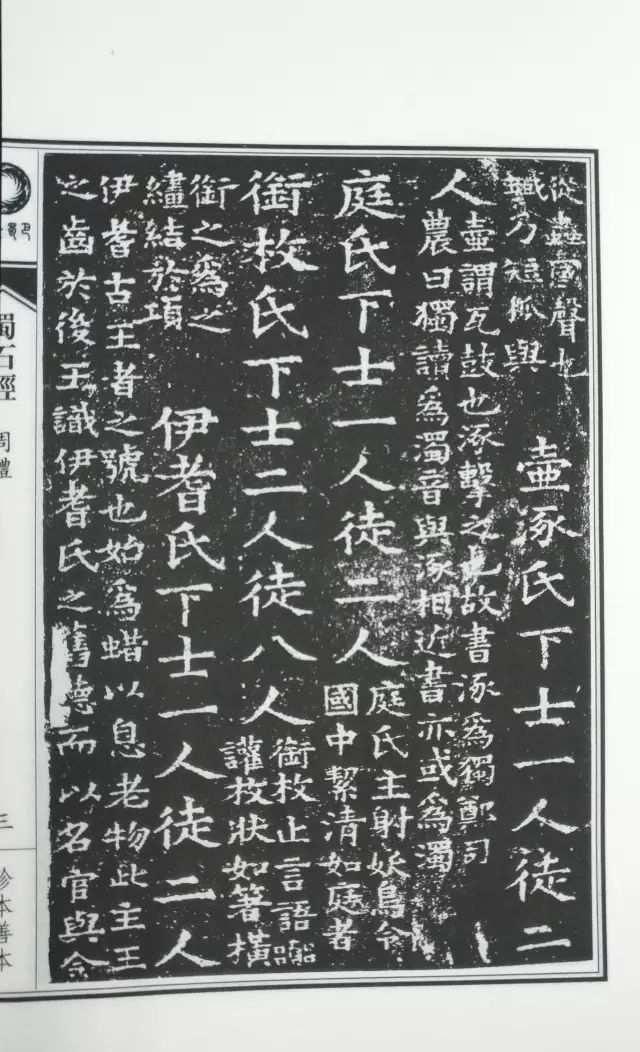 從蟲國聲也
蜮乃短狐與
壷涿氏下士一人徒二
人
壷謂瓦鼓也涿擊之也故書涿為獨鄭司
農曰獨讀為濁音與涿相近書亦或為濁
庭氏下士一人徒二人
庭氏主射妖鳥令
國中絜清如庭者
銜枚氏下士二人徒八人
銜枚止言語嚻
讙枚狀如箸橫
銜之為之
繣結於項
伊耆氏下士一人徒二人
伊耆古王者之號也始為蜡以息老物此主王
之齒杖後王識伊耆氏之舊德而以名官與今
蜀石經 周禮 三
珍本善本